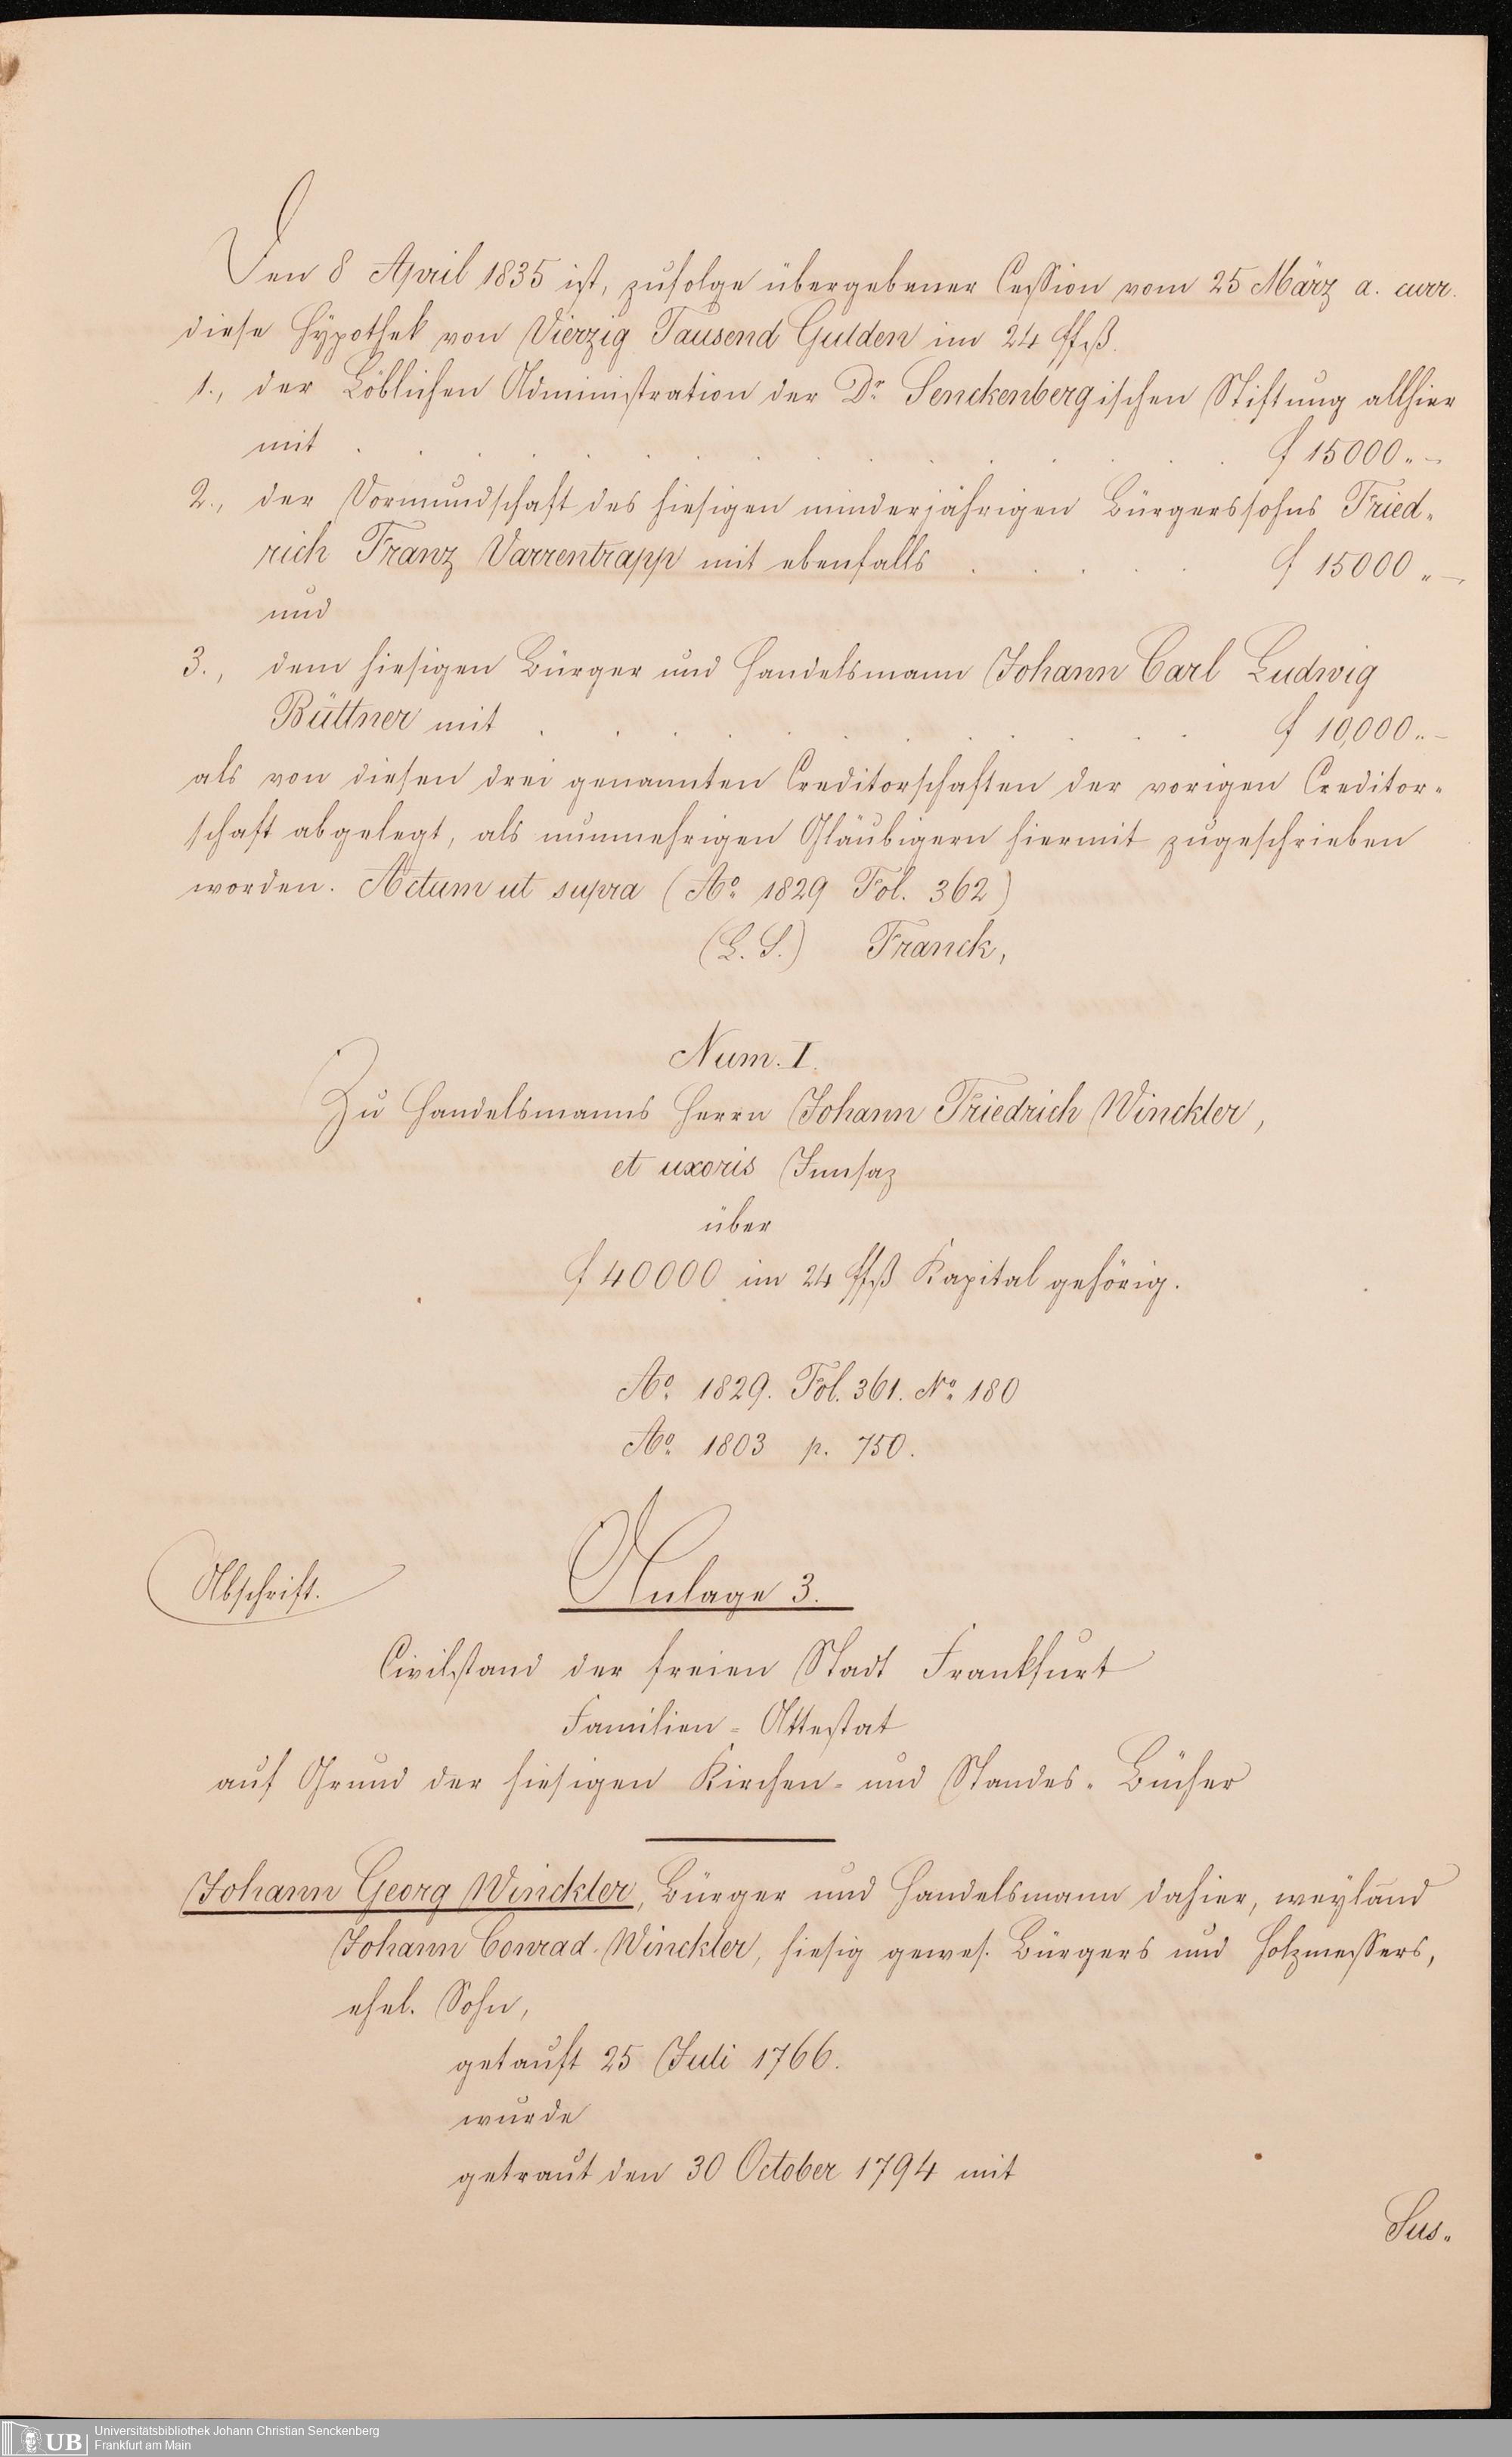 Den 8 April 1835 ist, zufolge übergebener Cession vom 25 März a. curr.
diese Hypothek von Vierzig Tausend Gulden im 24 ffß.
1., der Löblichen Administration der Dr. Senckenbergischen Stiftung allhier
mit . . . . . . . . . . . . . . . . f 15000.. –
2., der Vormundschaft des hiesigen minderjährigen Bürgerssohns Fried-
rich Franz Varrentrapp mit ebenfalls . . . . . f 15000 „ –,
und
3., dem hiesigen Bürger und Handelsmann Johann Carl Ludwig
Büttner mit . . . . . . . . . . . . f 10,000.. –
als von diesen drei genannten Creditorschaften der vorigen Creditor-
schaft abgelegt, als nunmehrigen Gläubigern hiermit zugeschrieben
worden. Actum ut supra (Ao. 1829 Fol. 362)
(L. S.) Franck,
Num. I.
Zu Handelsmanns Herrn Johann Friedrich Winckler,
et uxoris Innsaz
über
f 40000 im 24 ffß Kapital gehörig.
Ao. 1829. Fol. 361. No. 180
Ao. 1803 p. 750.
Abschrift.
Anlage 3.
Civilstand der freien Stadt Frankfurt
Familien-Attestat
auf Grund der hiesigen Kirchen- und Standes-Bücher
Johann Georg Winckler, Bürger und Handelsmann dahier, weyland
Johann Conrad Winckler, hiesig gewes. Bürgers und Holzmessers,
ehel. Sohn,
getauft 25 Juli 1766.
wurde
getraut den 30 October 1794 mit
Sus-
UB
Universitätsbibliothek Johann Christian Senckenberg
Frankfurt am Main